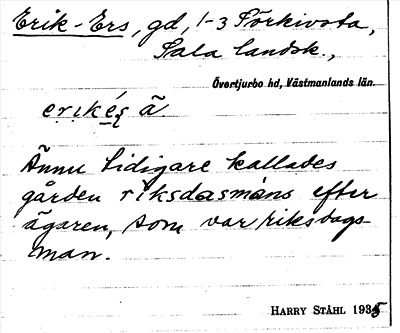 Erik-Ers, gd, 1-3 Förkivsta,
Sala landsk.,
Övertjurbo hd, Västmanlands län.
erikés ã.
Ännu tidigare kallades
gården riksdasmàns efter
ägaren, som var riksdags-
man.
HARRY STÅHL 1935